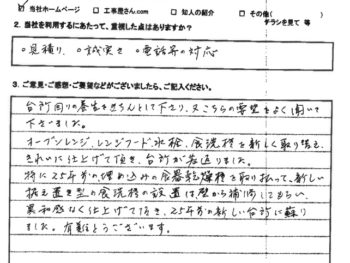 ☑ 当社ホームページ □ 工事屋さん.com □ 知人の紹介 □ その他(
チラシを見て 等
2. 当社を利用するにあたって、重視した点はありますか?
○見積り、○誠実さ ○電話等の対応
3. ご意見・ご感想・ご要望などがございましたら、ご記入ください。
台所回りの養生をきちんとして下さり、又こちらの要望をよく聞いて
下さいました。
オーブンレンジ、レンジフード、水栓、食洗機を新しく取り替え
きれいに仕上げて頂き、台所が若返りました。
特に25年前の埋め込みの食器乾燥機を取り払って、新しい
据え置き型の食洗機の設置は壁から補修してもらい
異和感なく仕上げて頂き、25年前の新しい台所に蘇り
ました。有難とうございます。